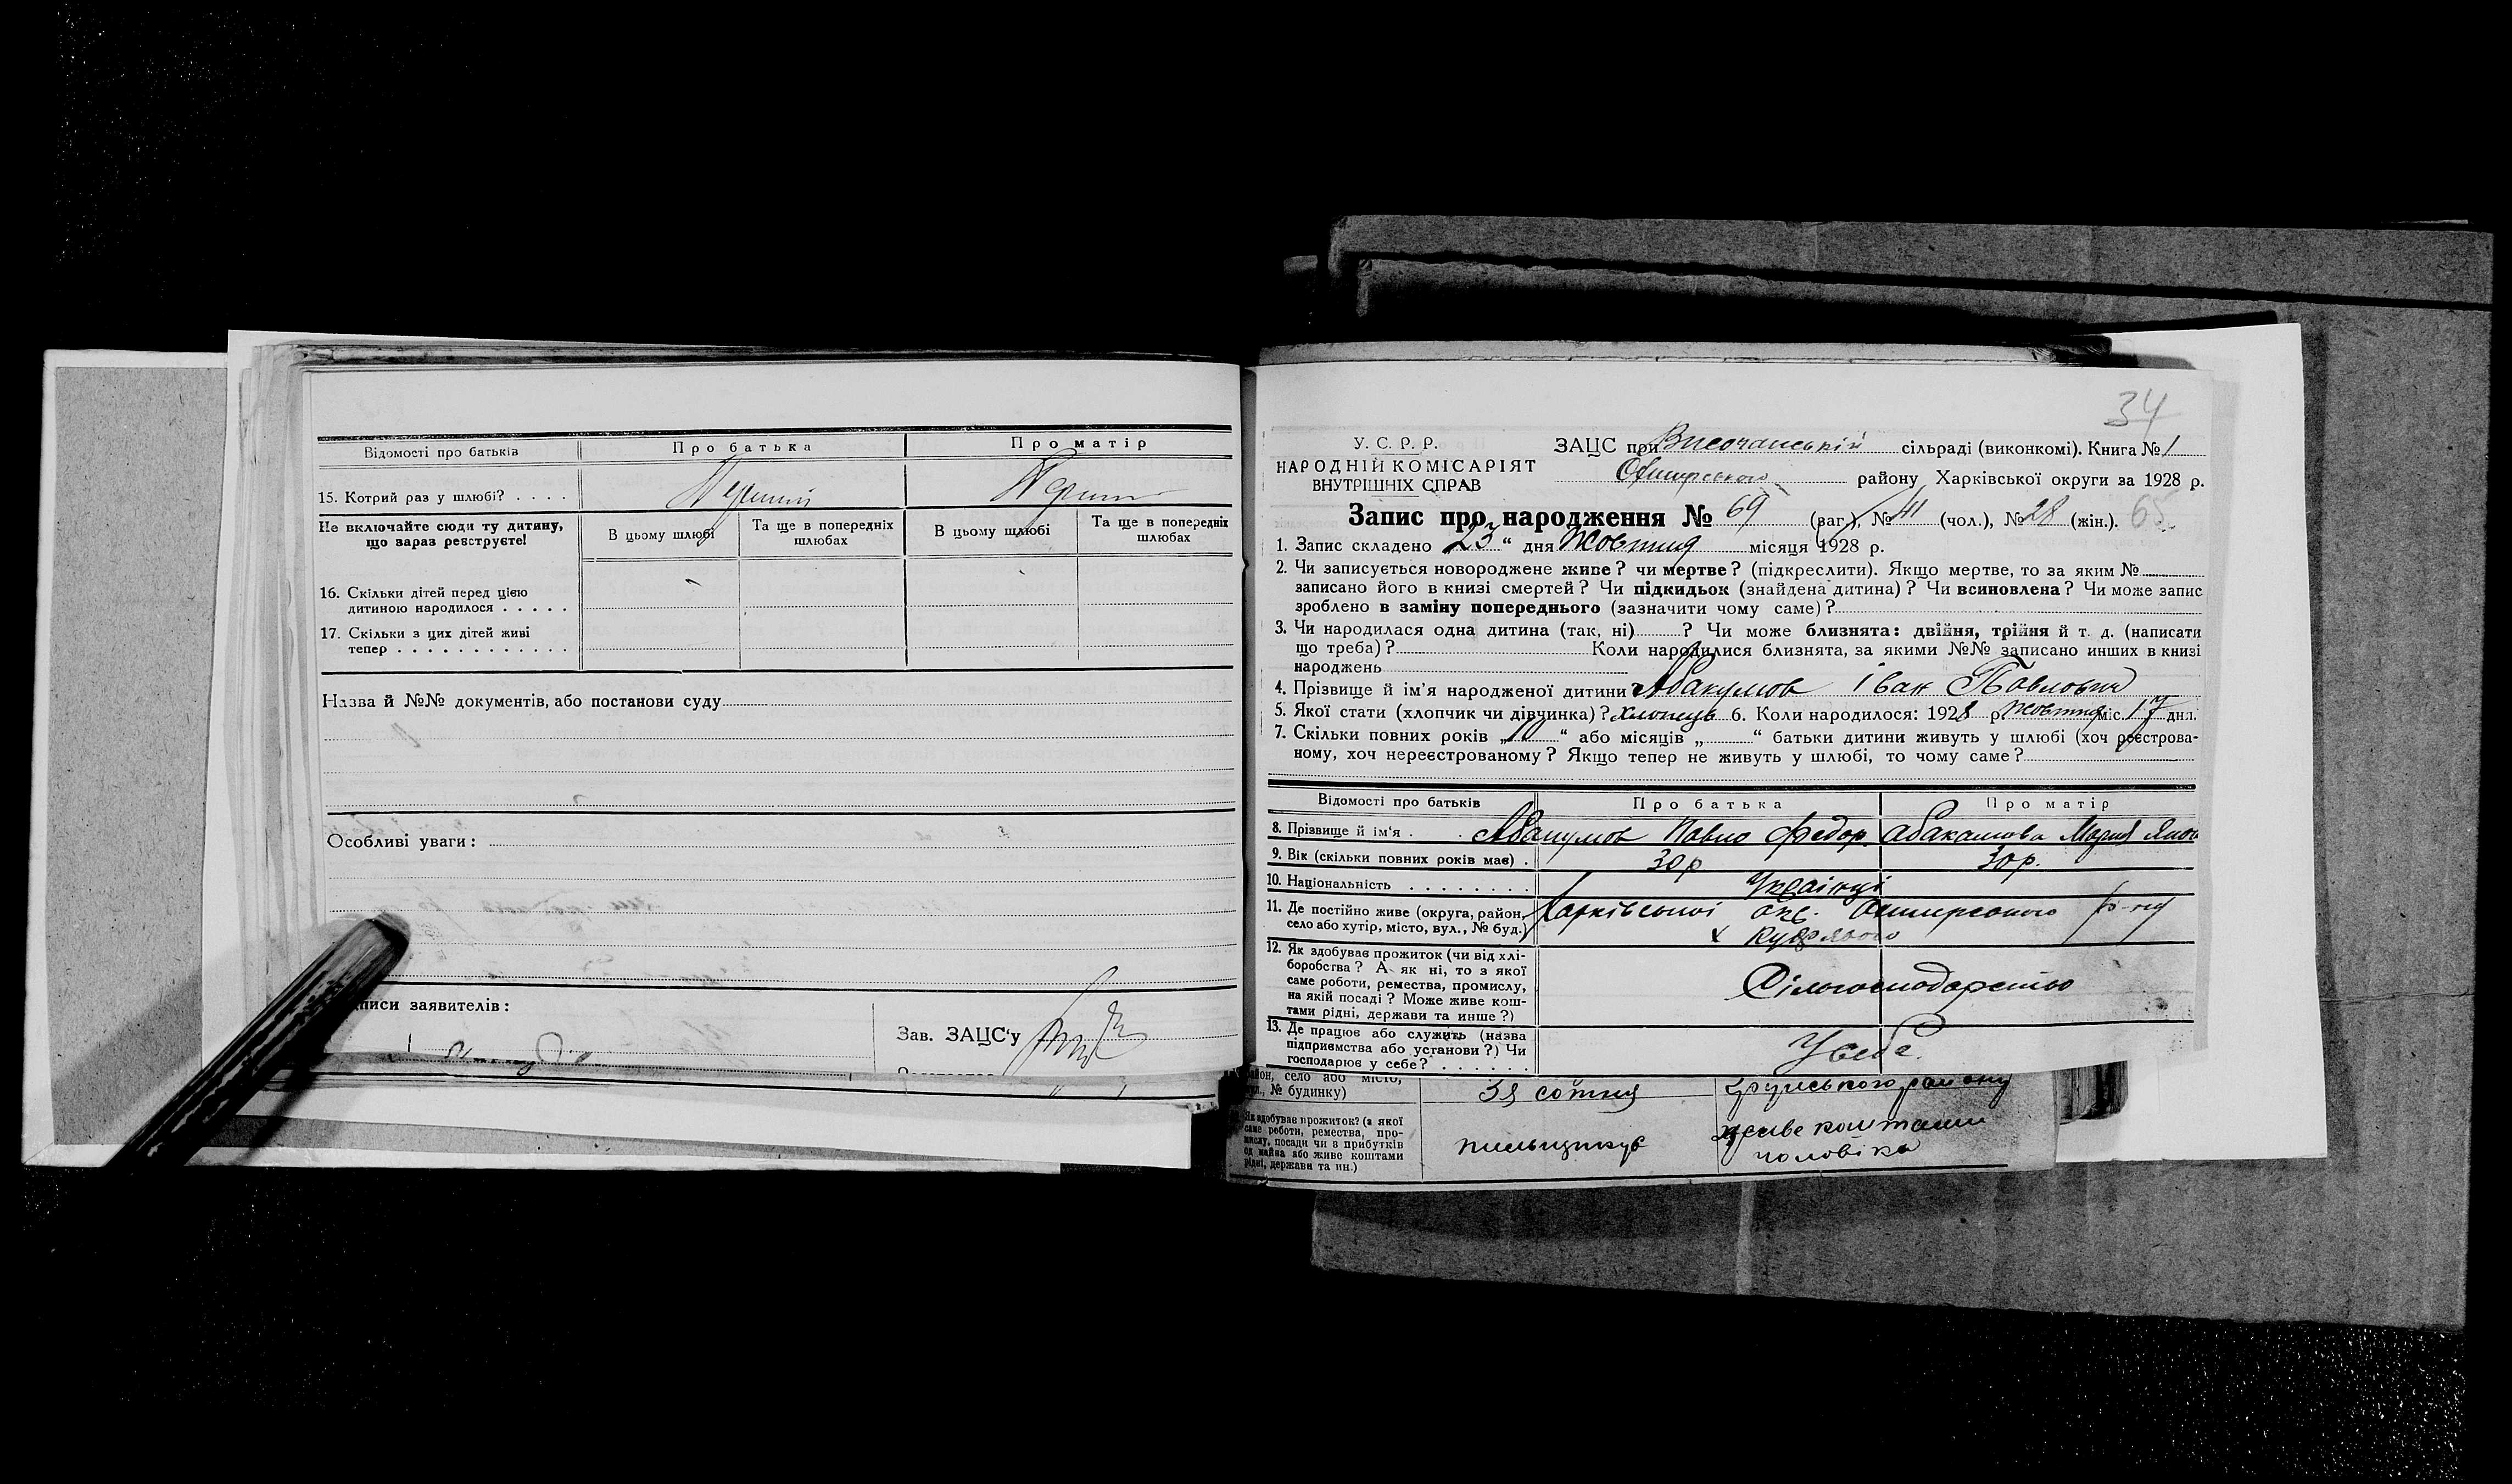 Відомості про батьків
Про батька
Про матір
15. Котрий раз у шлюбі? . . . .
Перший
Перши
Не включайте сюди ту дитину,
що зараз реєструєте!
В цьому шлюбі
Та ще в попередніх
шлюбах
В цьому шлюбі
Та ще в попередніх
шлюбах
16. Скільки дітей перед цією
дитиною народилося . . . . .
17. Скільки з цих дітей живі
тепер . . . . . . . . . . . .
Назва й №№ документів, або постанови суду
Особливі уваги:
писи заявителів:
Зав. ЗАЦС'у
34
У. С. Р. Р.
НАРОДНІЙ КОМІСАРІЯТ
ВНУТРІШНІХ СПРАВ
ЗАЦС при Височанській сільраді (виконкомі). Книга № 1
району Харківської округи за 1928 р.
Запис про народження № 69 (заг.), № 41 (чол.), № 28 (жін.). 65
1. Запис складено „23" дня Жовтня місяця 1928 р.
2. Чи записується новороджене живе? чи мертве? (підкреслити). Якщо мертве, то за яким №
записано його в книзі смертей? Чи підкидьок (знайдена дитина)? Чи всиновлена? Чи може запис
зроблено в заміну попереднього (зазначити чому саме)?
3. Чи народилася одна дитина (так, ні) ? Чи може близнята: двійня, трійня й т. д. (написати
що треба)? Коли народилися близнята, за якими №№ записано инших в книзі
народжень
4. Прізвище й ім'я народженої дитини? Абакумов Іван Павлович
5. Якої стати (хлопчик чи дівчинка)? хлопець 6. Коли народилося: 1928 р. Жовтня міс. 17 дня.
7. Скільки повних років „10" або місяців „ " батьки дитини живуть у шлюбі (хоч реєстрова-
ному, хоч нереєстрованому? Якщо тепер не живуть у шлюбі, то чому саме?
Відомості про батьків
Про батька
Про матір
8. Прізвище й ім'я . .
Абакумов Павло Федор.
Абакамова Мария Яков
9. Вік (скільки повних років має) .
30 р
30 р.
10. Національність . . . . . . . .
Українці
11. Де постійно живе (округа, район,
село або хутір, місто, вул., № буд.)
Харківської окр. р-ну
х
12. Як здобуває прожиток (чи від хлі-
боробства? А як ні, то з якої
саме роботи, ремества, промислу,
на якій посаді? Може живе кош-
тами рідні, держави та инше?)
Сільгосподарство
13. Де працює або служить (назва
підприємства або установи?) Чи
господарює у себе? . . . . . .
У себе.
айон, село або місто,
вул., № будинку)
38 сотня
району
Як здобуває прожиток? (з якої
саме роботи, ремества, про-
мислу, посади чи з прибутків
од майна або живе коштами
рідні, держави та ин.)
живе коштами
чоловіка